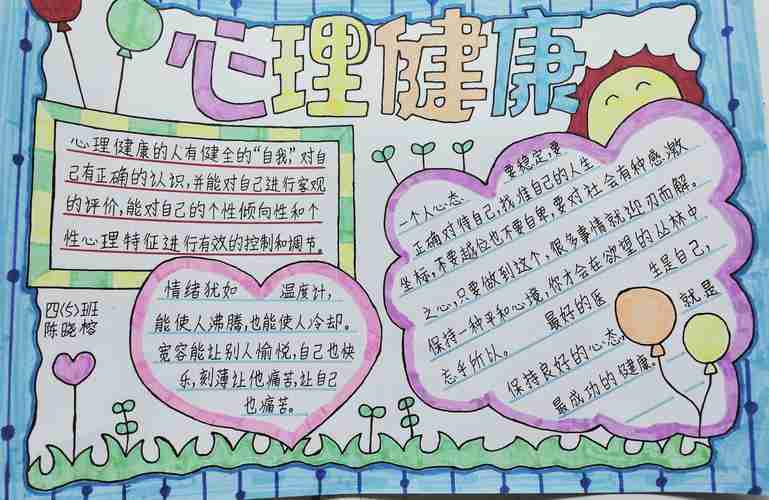 心理健康
心理健康的人有健全的“自我”,对自
己有正确的认识,并能对自己进行客观
的评价,能对自己的个性倾向性和个
性心理特征进行有效的控制和调节。
情绪犹如 温度计,
能使人沸腾,也能使人冷却。
宽容能让别人愉悦,自己也快
乐,刻薄让他痛苦,让自己
也痛苦。
四(5)班
陈晓榕
一个人心态 要稳定,要
正确对待自己,找准自己的人生
坐标,不要越位也不要自卑,要对社会有种感激
之心,只要做到这个,很多事情就迎刃而解。
保持一种平和心境,你才会在欲望的丛林中
忘乎所以。 最好的医 生是自己,
保持良好的心态 就是
最成功的健康。